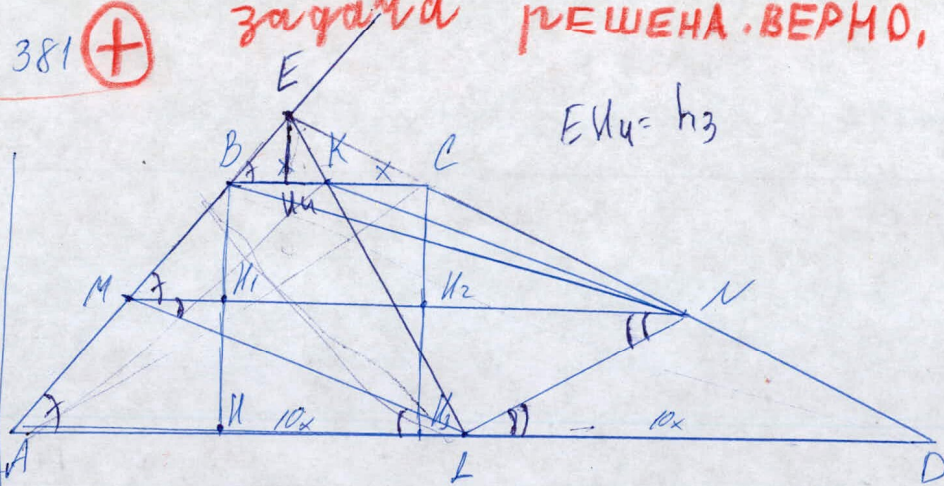 381 + задача РЕШЕНА. ВЕРНО.
E
EH4 = h3
B x K x C
H4
M H1 H2 N
A H 10x H3 L 10x D